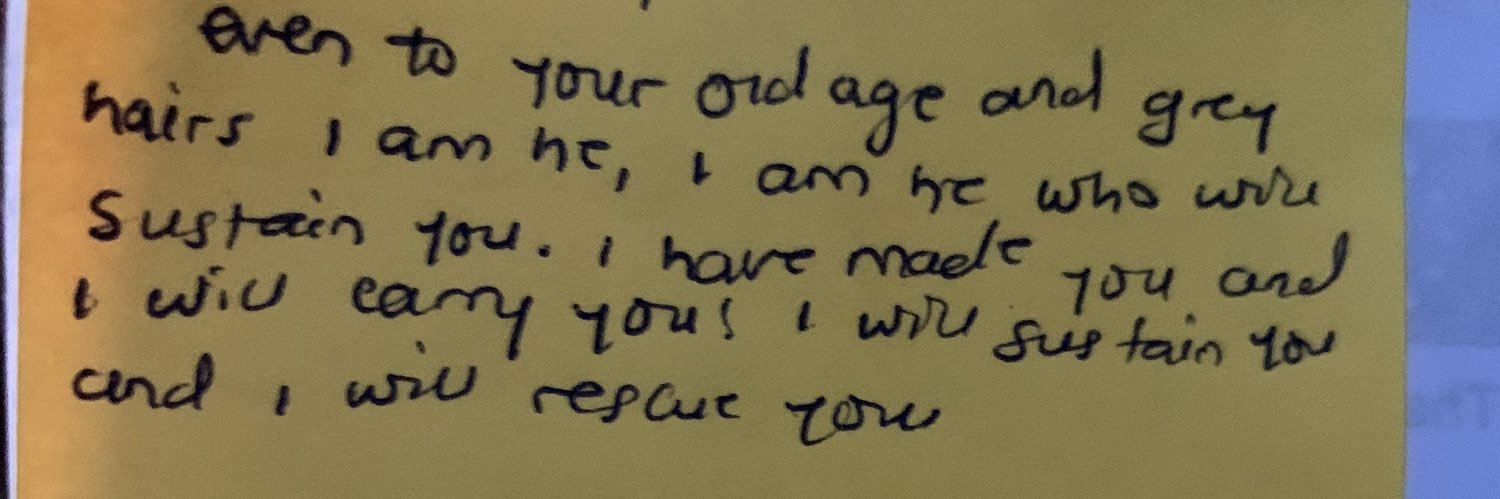 even to your old age and grey
hairs I am he, I am he who will
sustain you. I have made you and
I will carry you! I will sustain you
and I will rescue you